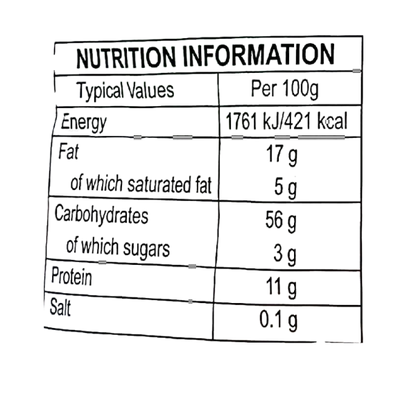 NUTRITION INFORMATION
Typical Values Per 100g
Energy 1761 kJ/421 kcal
Fat 17 g
of which saturated fat 5 g
Carbohydrates 56 g
of which sugars 3 g
Protein 11 g
Salt 0.1 g